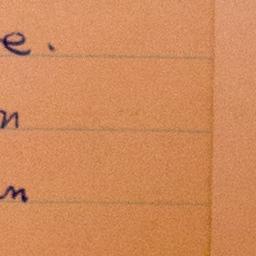 e.
n
n